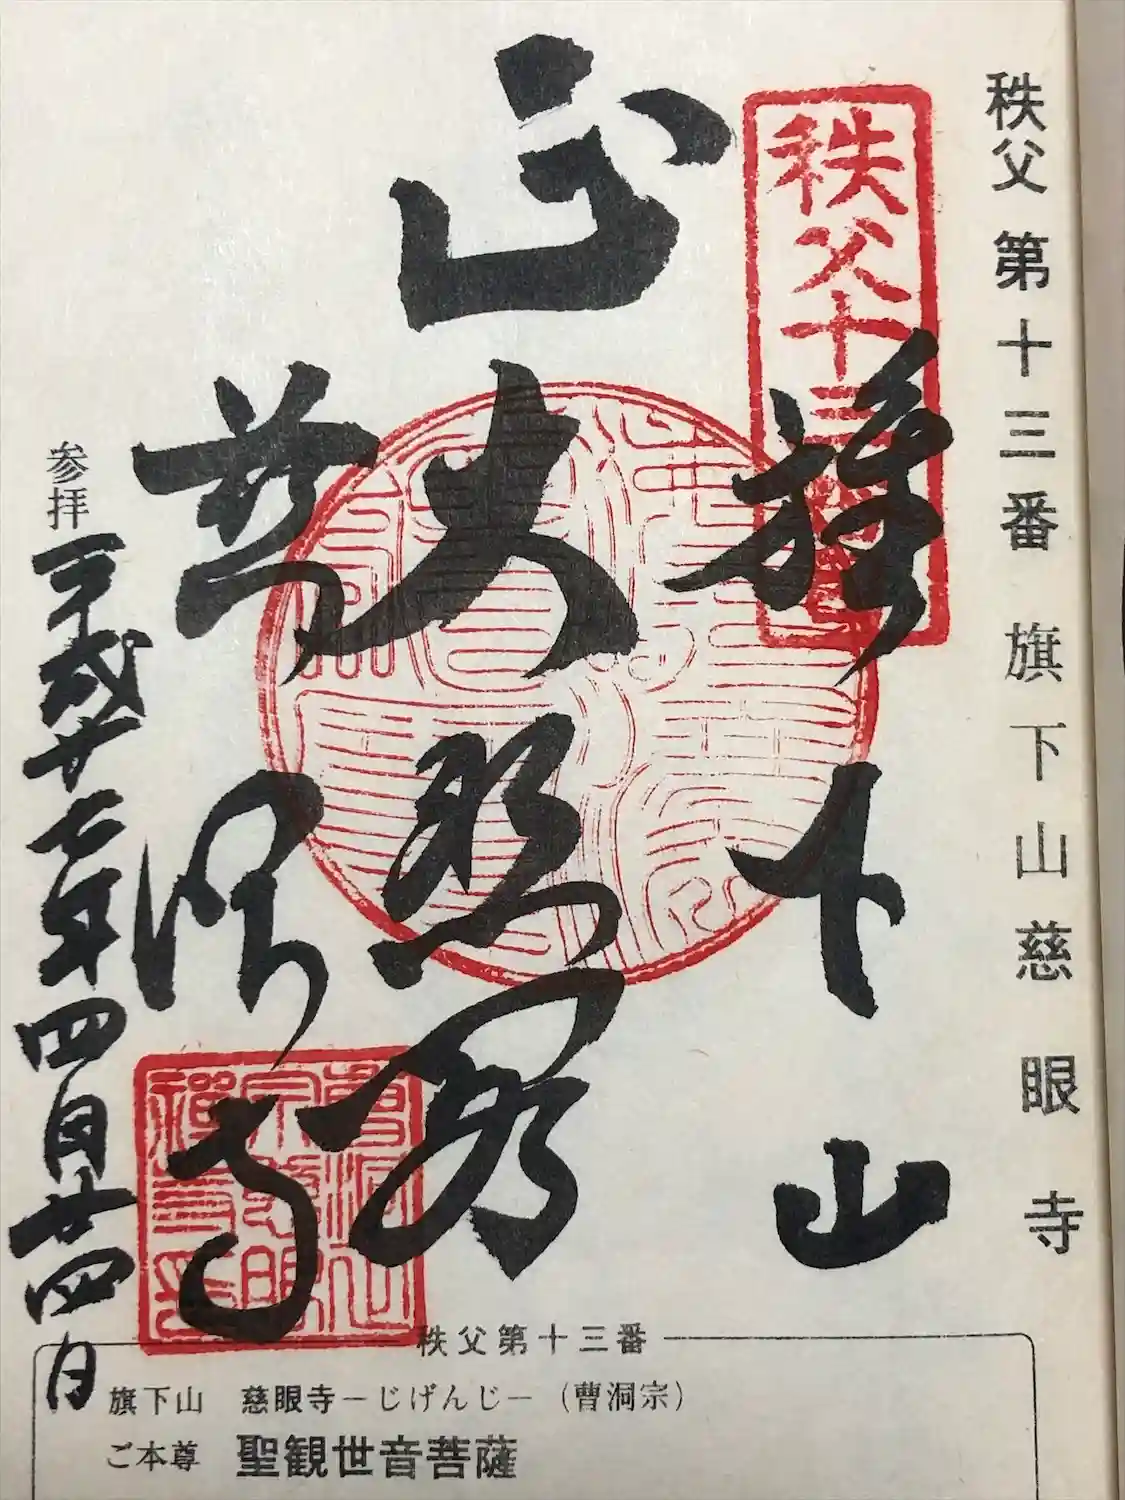 秩父 第十三番 旗下山 慈眼寺
秩父十三番
旗下山
大悲殿
慈眼寺
参拝 平成廿七年四月廿四日
曹洞宗慈眼禅寺
秩父第十三番
旗下山 慈眼寺－じげんじ－（曹洞宗）
ご本尊 聖観世音菩薩